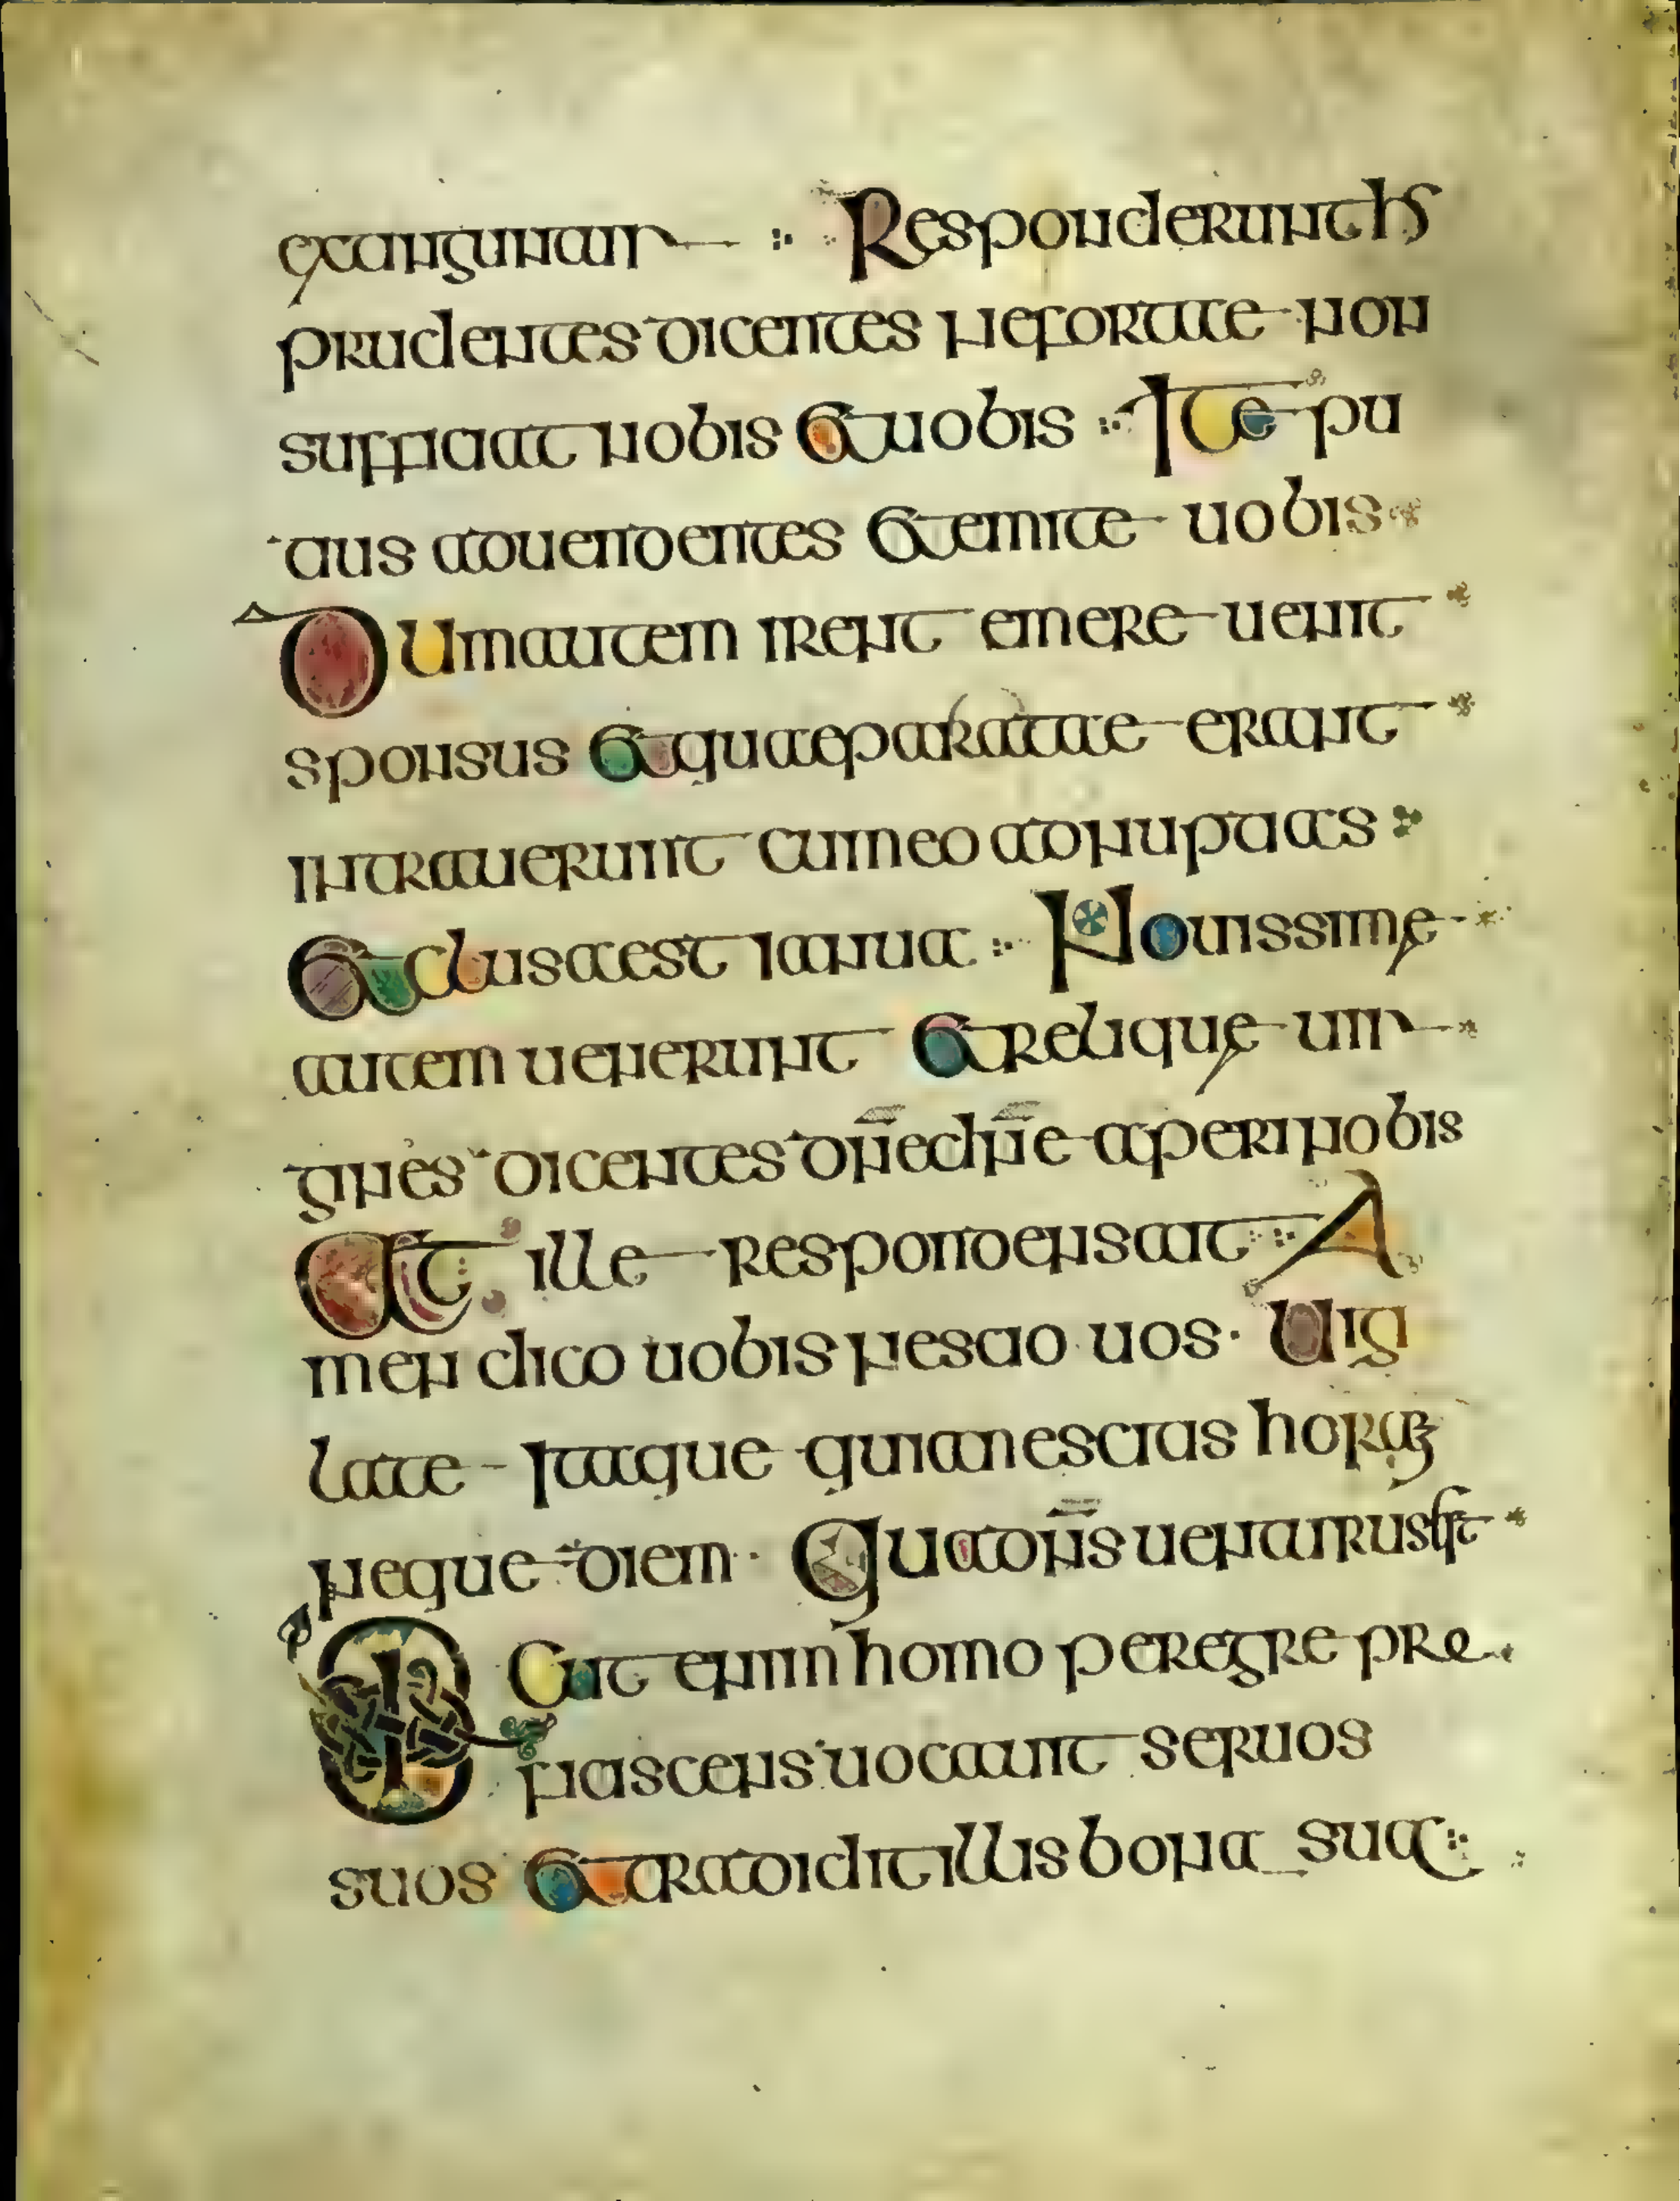 extinguntur Responderunt hs
prudentes dicentes neforte non
sufficiat nobis et uobis Ite po
tius aduendentes et emite uobis
Dum autem irent emere uenit
sponsus et quae paratae erant
intrauerunt cum eo ad nuptias
et clusa est ianua Nouissime
autem uenerunt et relique uir
gines dicentes dne dne aperi nobis
At ille respondens ait A
men dico uobis nescio uos · Uigi
late itaque quia nescitis horam
neque diem · Qua dns uenturus sit
Sicut enim homo peregre pro
ficiscens uocauit seruos
suos et tradidit illis bona sua